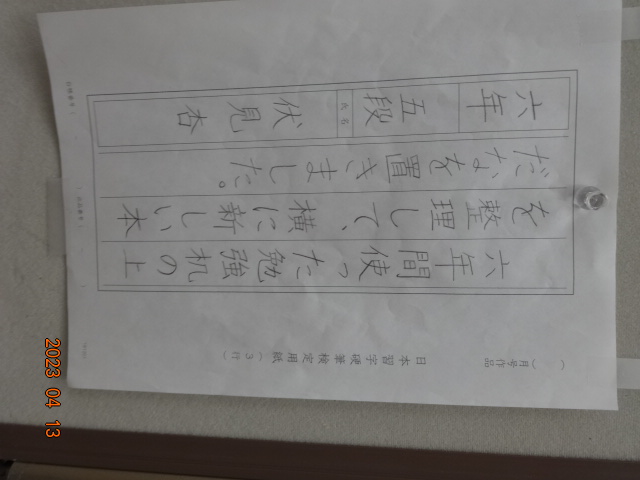 ( )月号作品
日本習字硬筆検定用紙(3行)
六年間使った勉強机の上
を整理して、横に新しい本
だなを置きました。
六年
五段
氏名
伏見杏
2023 04 13